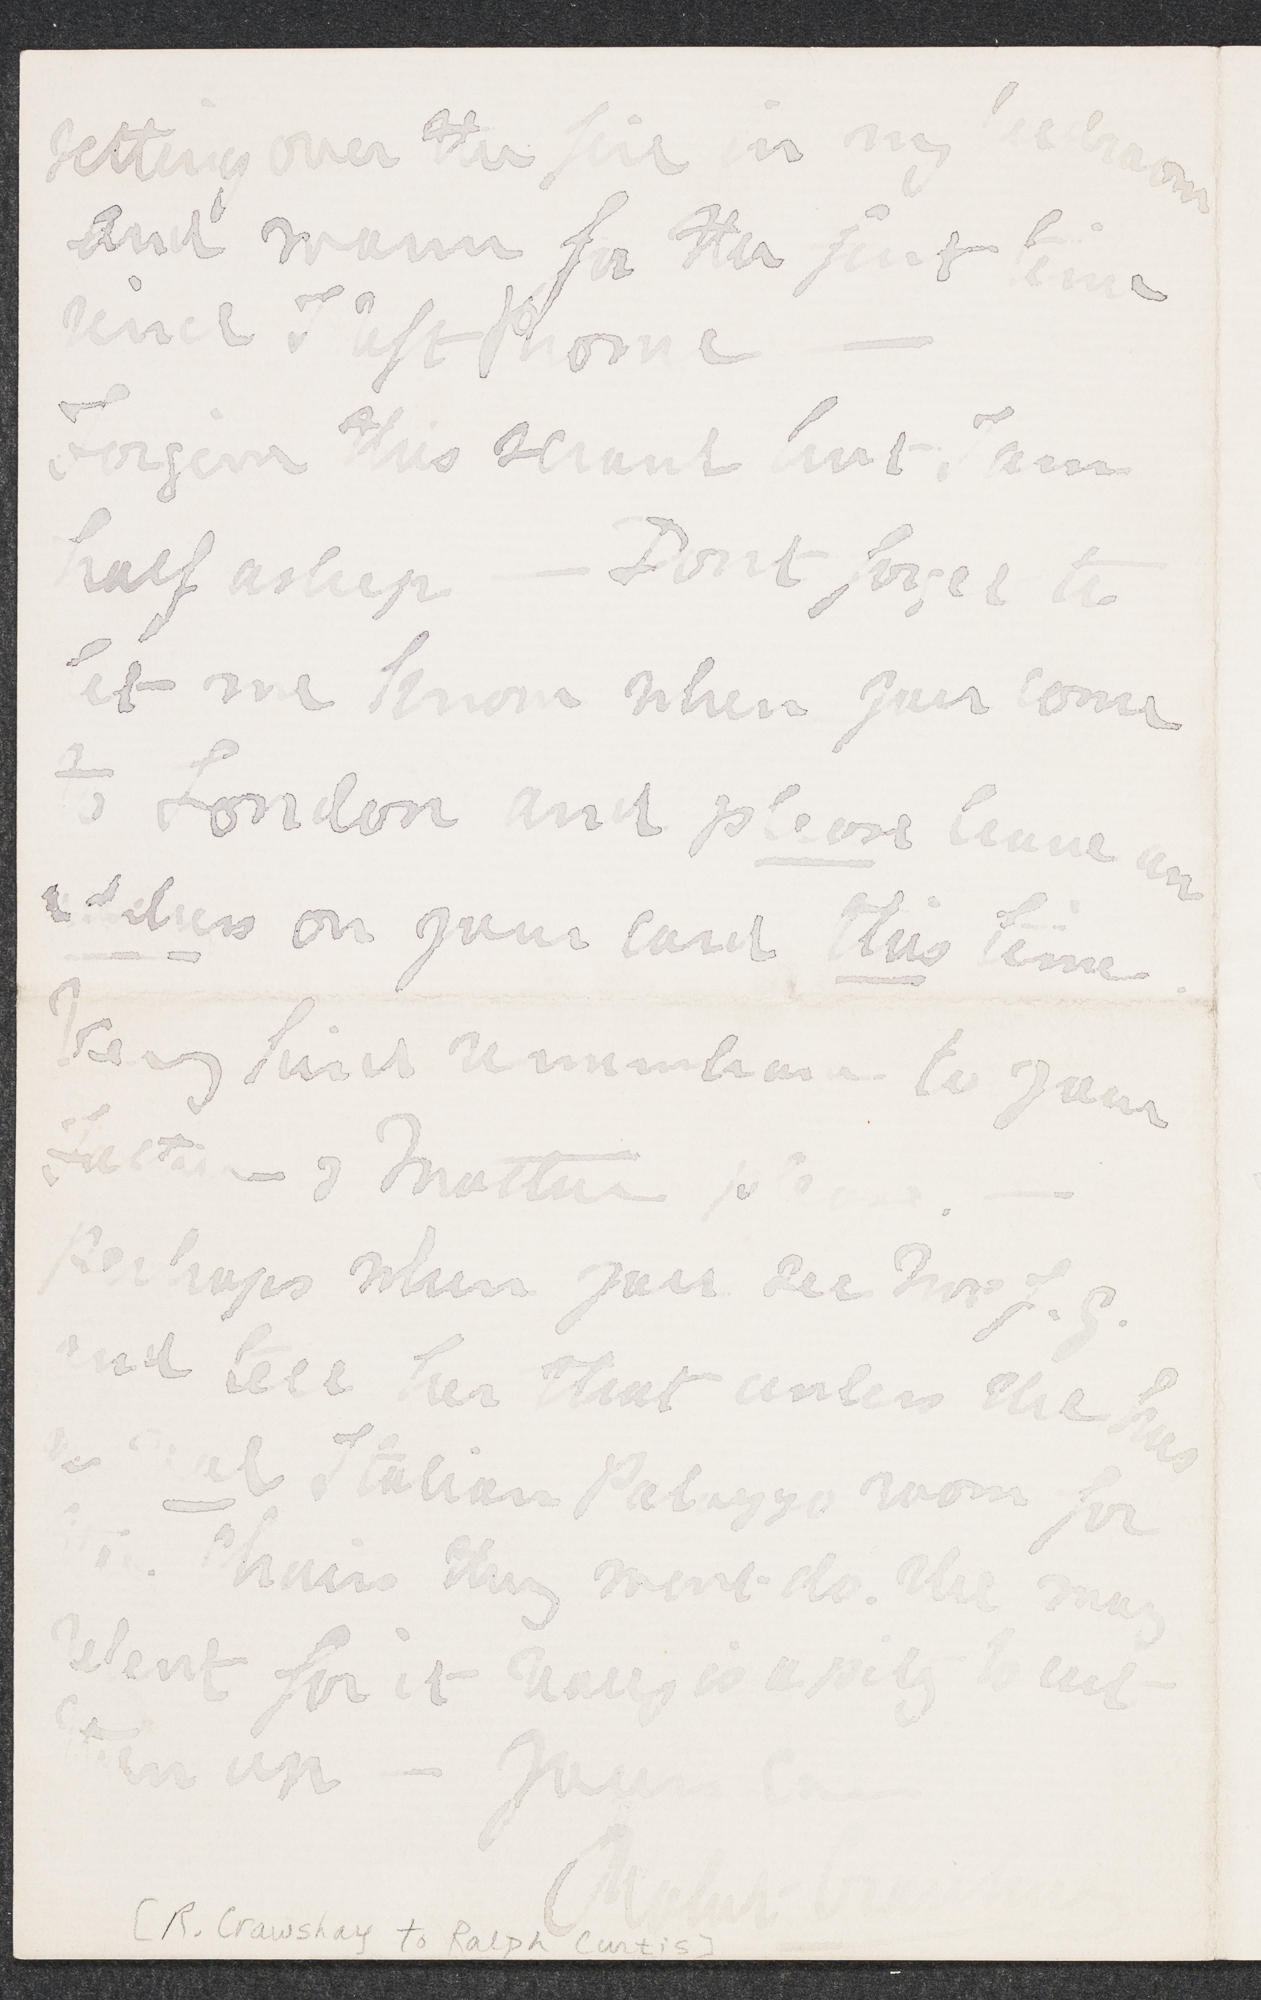 sitting over the fire in my bedroom
and warm for the first time
since I left home —
Forgive this scrawl but I am
half asleep — Dont forget to
let me know when you come
to London and please leave an
address on your card this time.
Very kind remembrance to your
Father & Mother please. —
Perhaps when you see Mrs J. G.
and tell her that unless she has
a real Italian Palazzo room for
the Chairs they wont do. She may
went for it is a pity to cut
them up — Yours
Robert Crawshay
[R. Crawshay to Ralph Curtis]